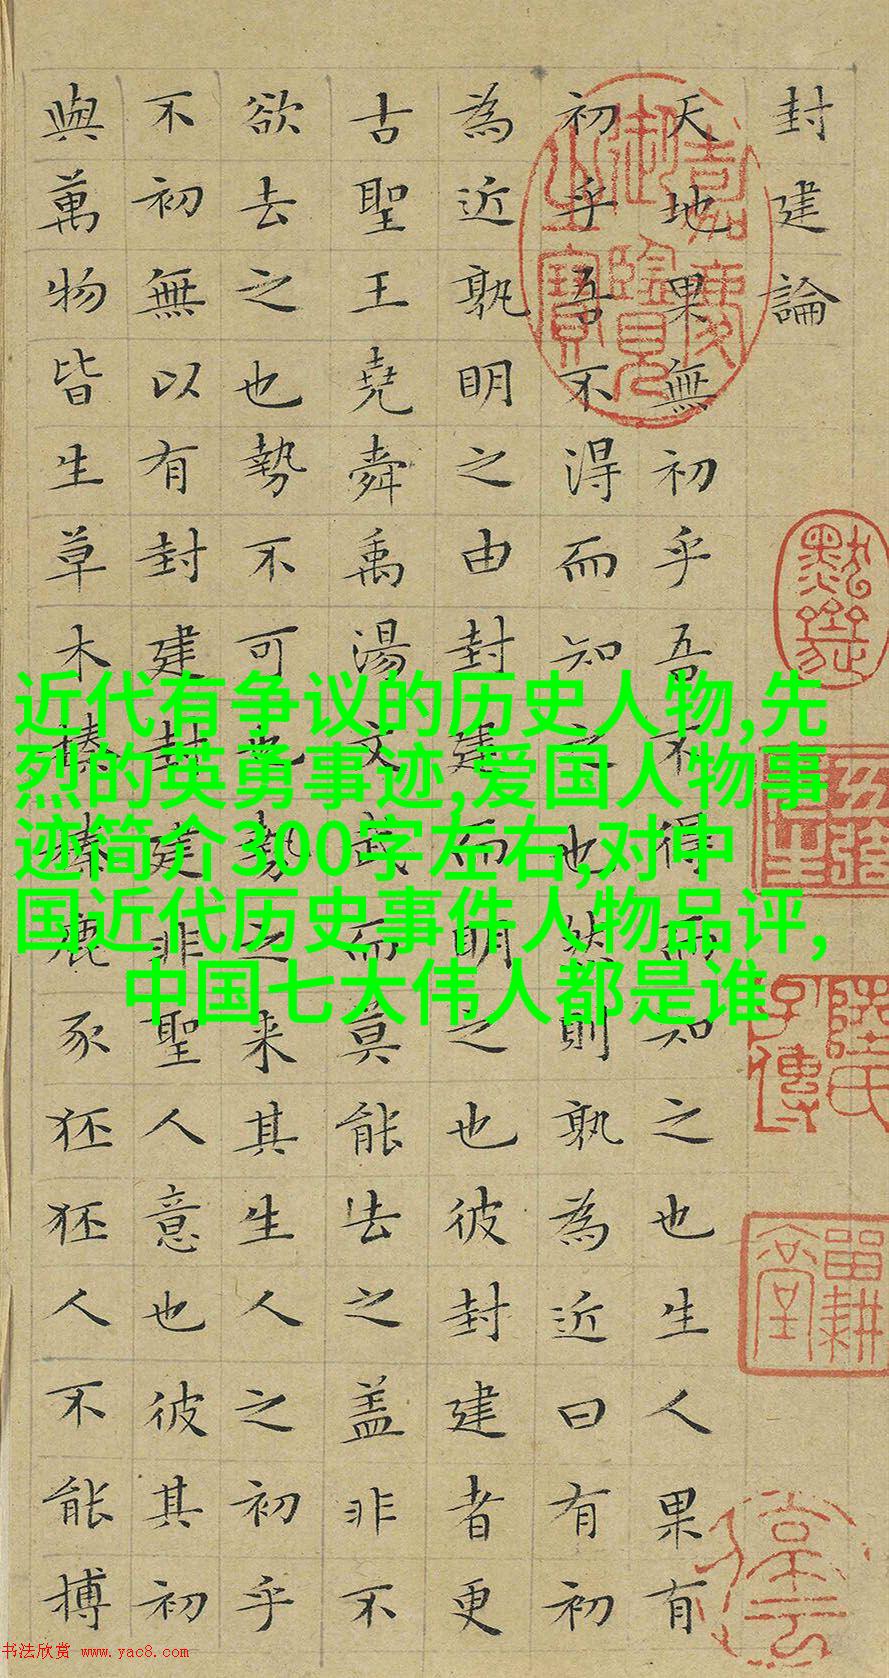 封建論
天地果無初乎吾不得而知之也生人果有
初乎吾不得而知之也然則孰為近曰有初
為近孰明之由封建而明之也彼封建者更
古聖王堯舜禹湯文武而莫能去之蓋非不
欲去之也勢不可也勢之來其生人之初乎
不初無以有封建封建非聖人意也彼其初
與萬物皆生草木榛榛鹿豕狉狉人不能搏
嘉慶御覽之寶
近代有争议的历史人物,先
烈的英勇事迹,爱国人物事
迹简介300字左右,对中
国近代历史事件人物品评,
中国七大伟人都是谁
书法欣赏 www.yac8.com